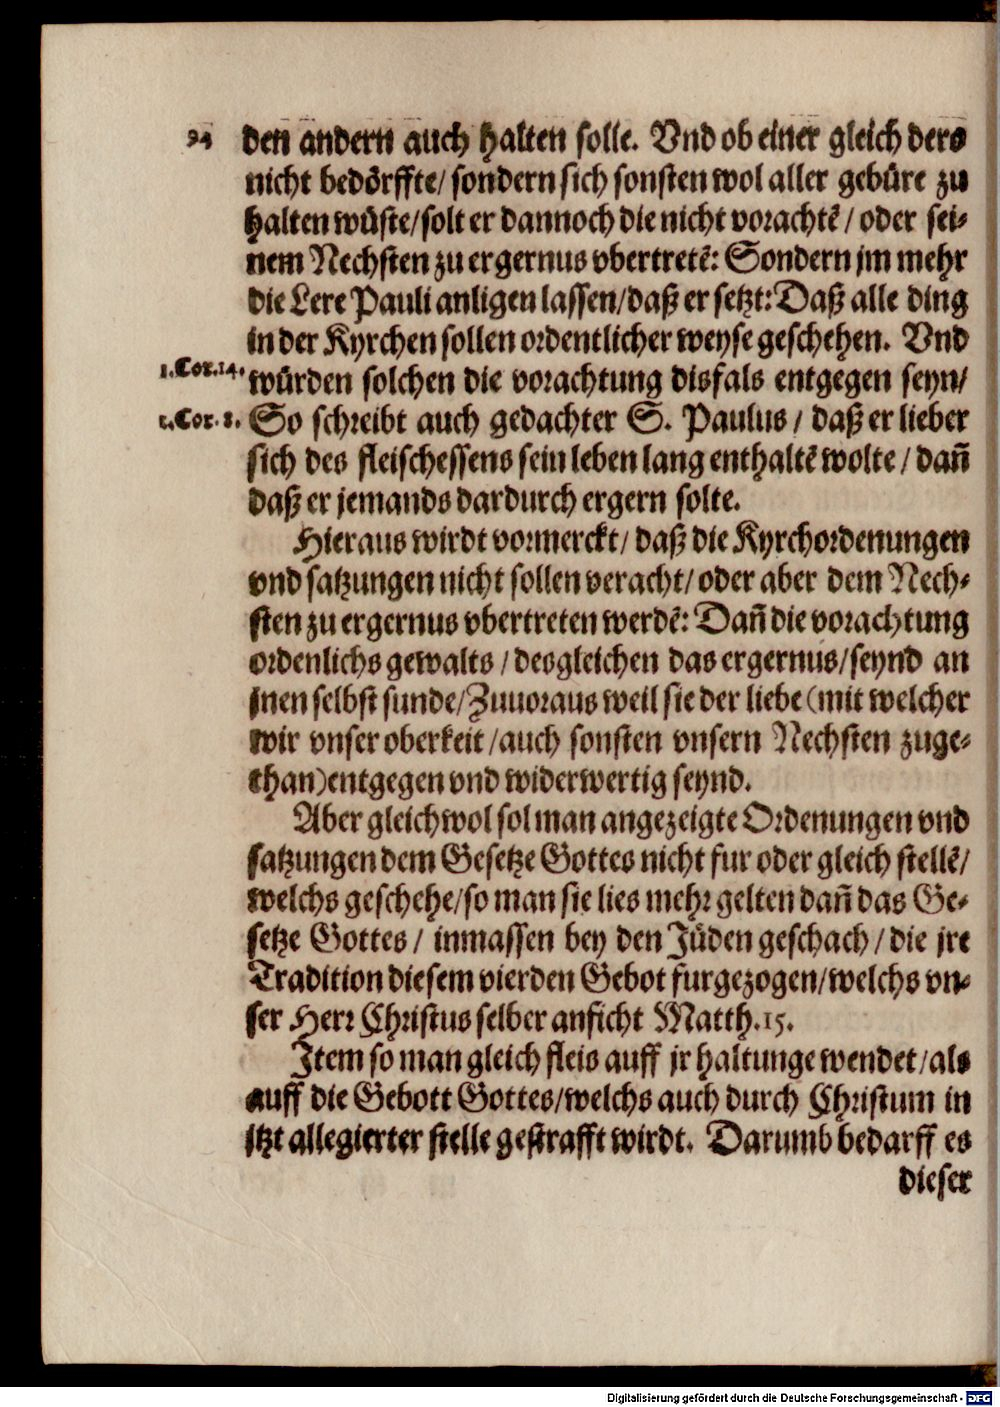 94 den andern auch halten solle. Vnd ob einer gleich ders
nicht bedörffte/ sondern sich sonsten wol aller gebüre zu
halten wüste/ solt er dannoch die nicht vorachtē/ oder sei-
nem Nechsten zu ergernus vbertretē: Sondern jm mehr
die Lere Pauli anligen lassen/ daß er setzt: Daß alle ding
in der Kyrchen sollen ordentlicher weyse geschehen. Vnd
1. Cor. 14. würden solchen die vorachtung disfals entgegen seyn/
1. Cor. 8. So schreibt auch gedachter S. Paulus/ daß er lieber
sich des fleischessens sein leben lang enthaltē wolte/ dañ
daß er jemands dardurch ergern solte.
Hieraus wirdt vormerckt/ daß die Kyrchordenungen
vnd satzungen nicht sollen veracht/ oder aber dem Nech-
sten zu ergernus vbertreten werdē: Dañ die vorachtung
ordenlichs gewalts/ desgleichen das ergernus/ seynd an
jnen selbst sunde/ Zuuoraus weil sie der liebe (mit welcher
wir vnser oberkeit/ auch sonsten vnsern Nechsten zuge-
than) entgegen vnd widerwertig seynd.
Aber gleichwol sol man angezeigte Ordenungen vnd
satzungen dem Gesetze Gottes nicht fur oder gleich stellē/
welchs geschehe/ so man sie lies mehr gelten dañ das Ge-
setze Gottes/ inmassen bey den Jüden geschach/ die jre
Tradition diesem vierden Gebot furgezogen/ welchs vn-
ser Herr Christus selber anficht Matth. 15.
Item so man gleich fleis auff jr haltunge wendet/ als
auff die Gebott Gottes/ welchs auch durch Christum in
jtzt allegierter stelle gestrafft wirdt. Darumb bedarff es
dieser
Digitalisierung gefördert durch die Deutsche Forschungsgemeinschaft - DFG